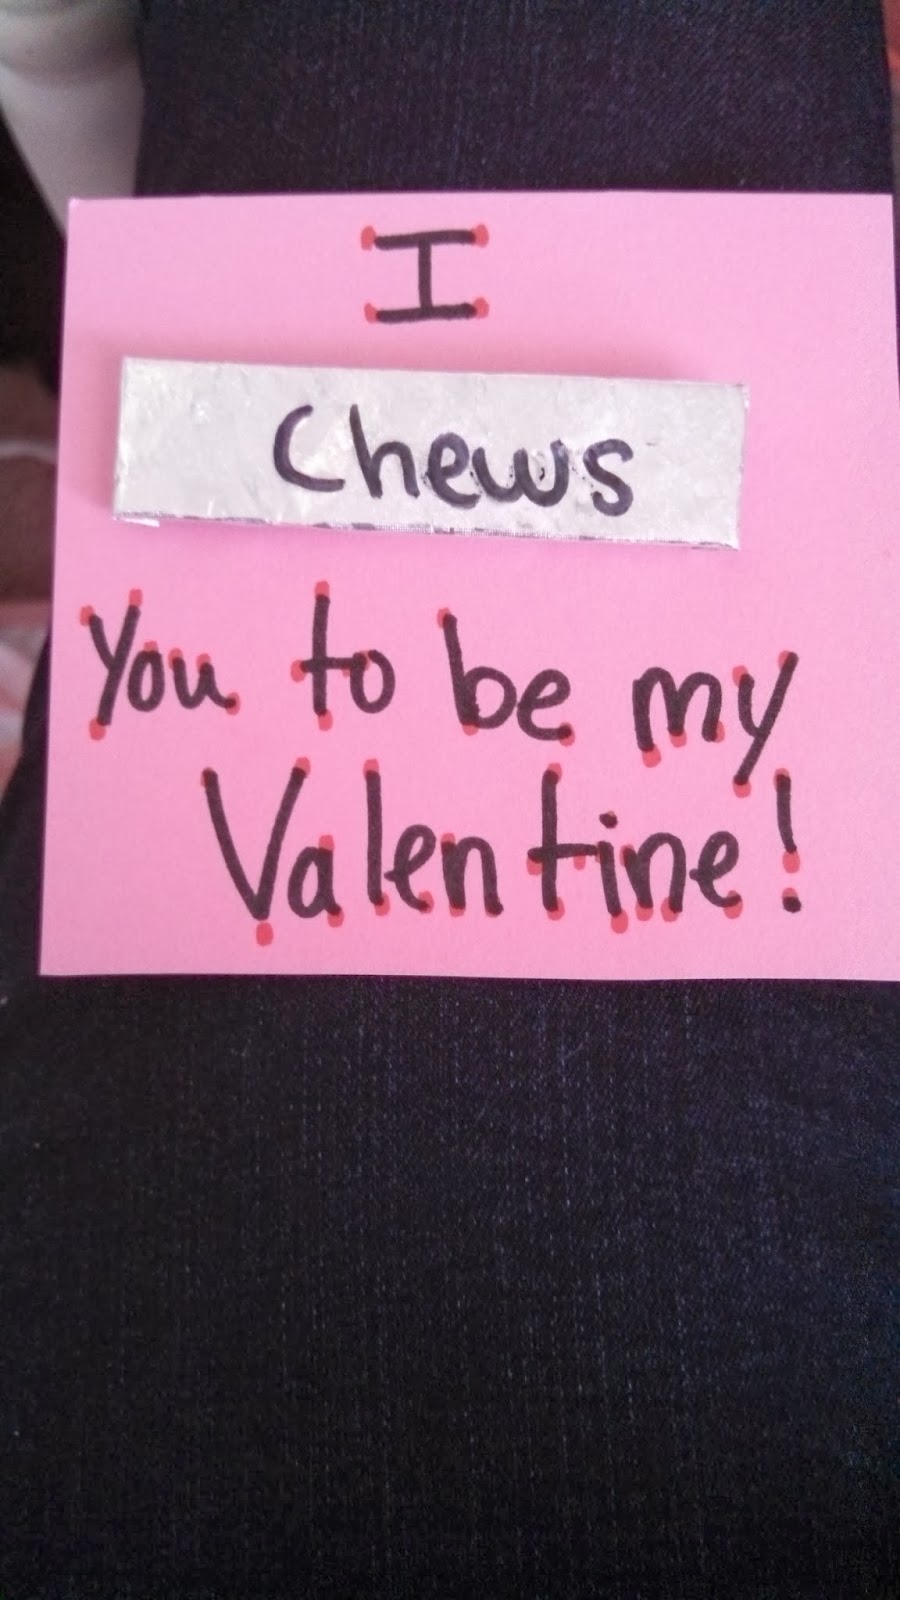 I
Chews
You to be my
Valentine!